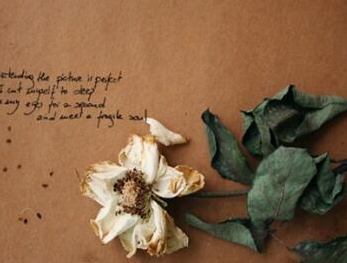 pretending the picture is perfect
I cut myself to sleep
my eyes for a second
and meet a fragile soul